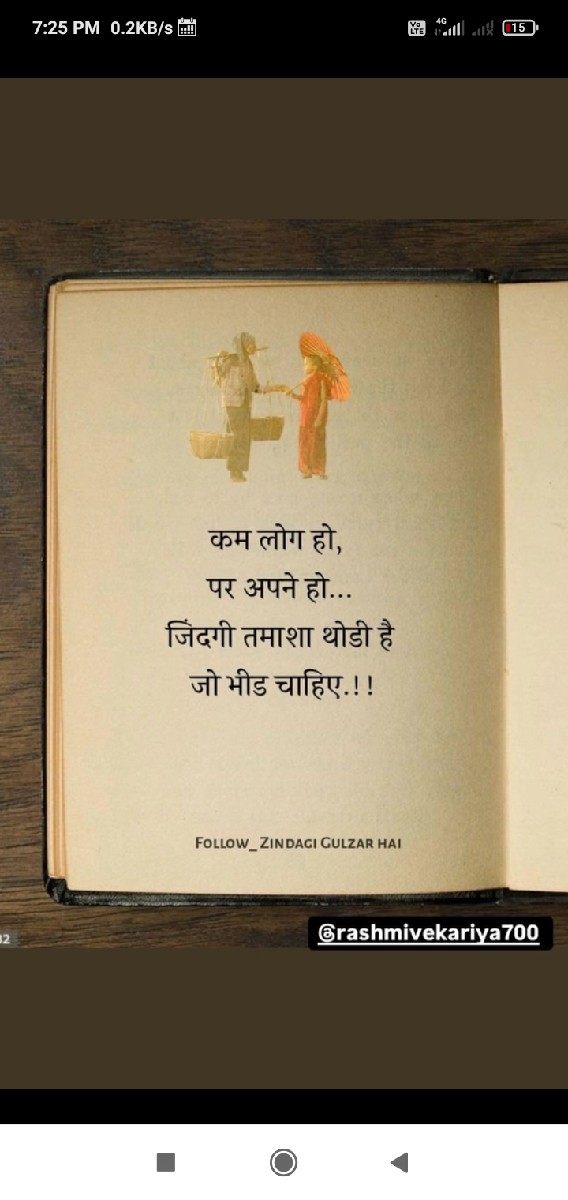 7:25 PM 0.2KB/s
Vo LTE 4G 15
कम लोग हो,
पर अपने हो...
जिंदगी तमाशा थोडी है
जो भीड चाहिए.!!
FOLLOW_ZINDAGI GULZAR HAI
@rashmivekariya700